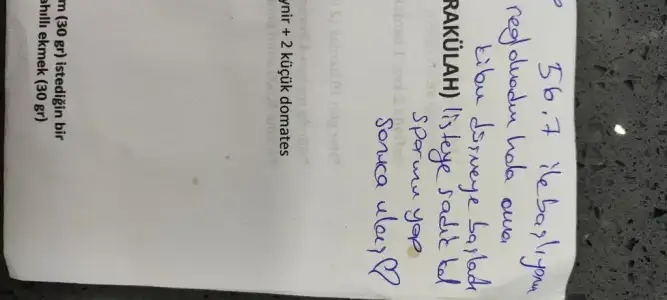 56.7 ile başlıyorum
regl olmadım hala ama
kilom düşmeye başladı
RAKÜLAH) listeye sadık kal
sporunu yap
Sonuca ulaş ♡
ynir + 2 küçük domates
m (30 gr) istediğin bir
ahıllı ekmek (30 gr)